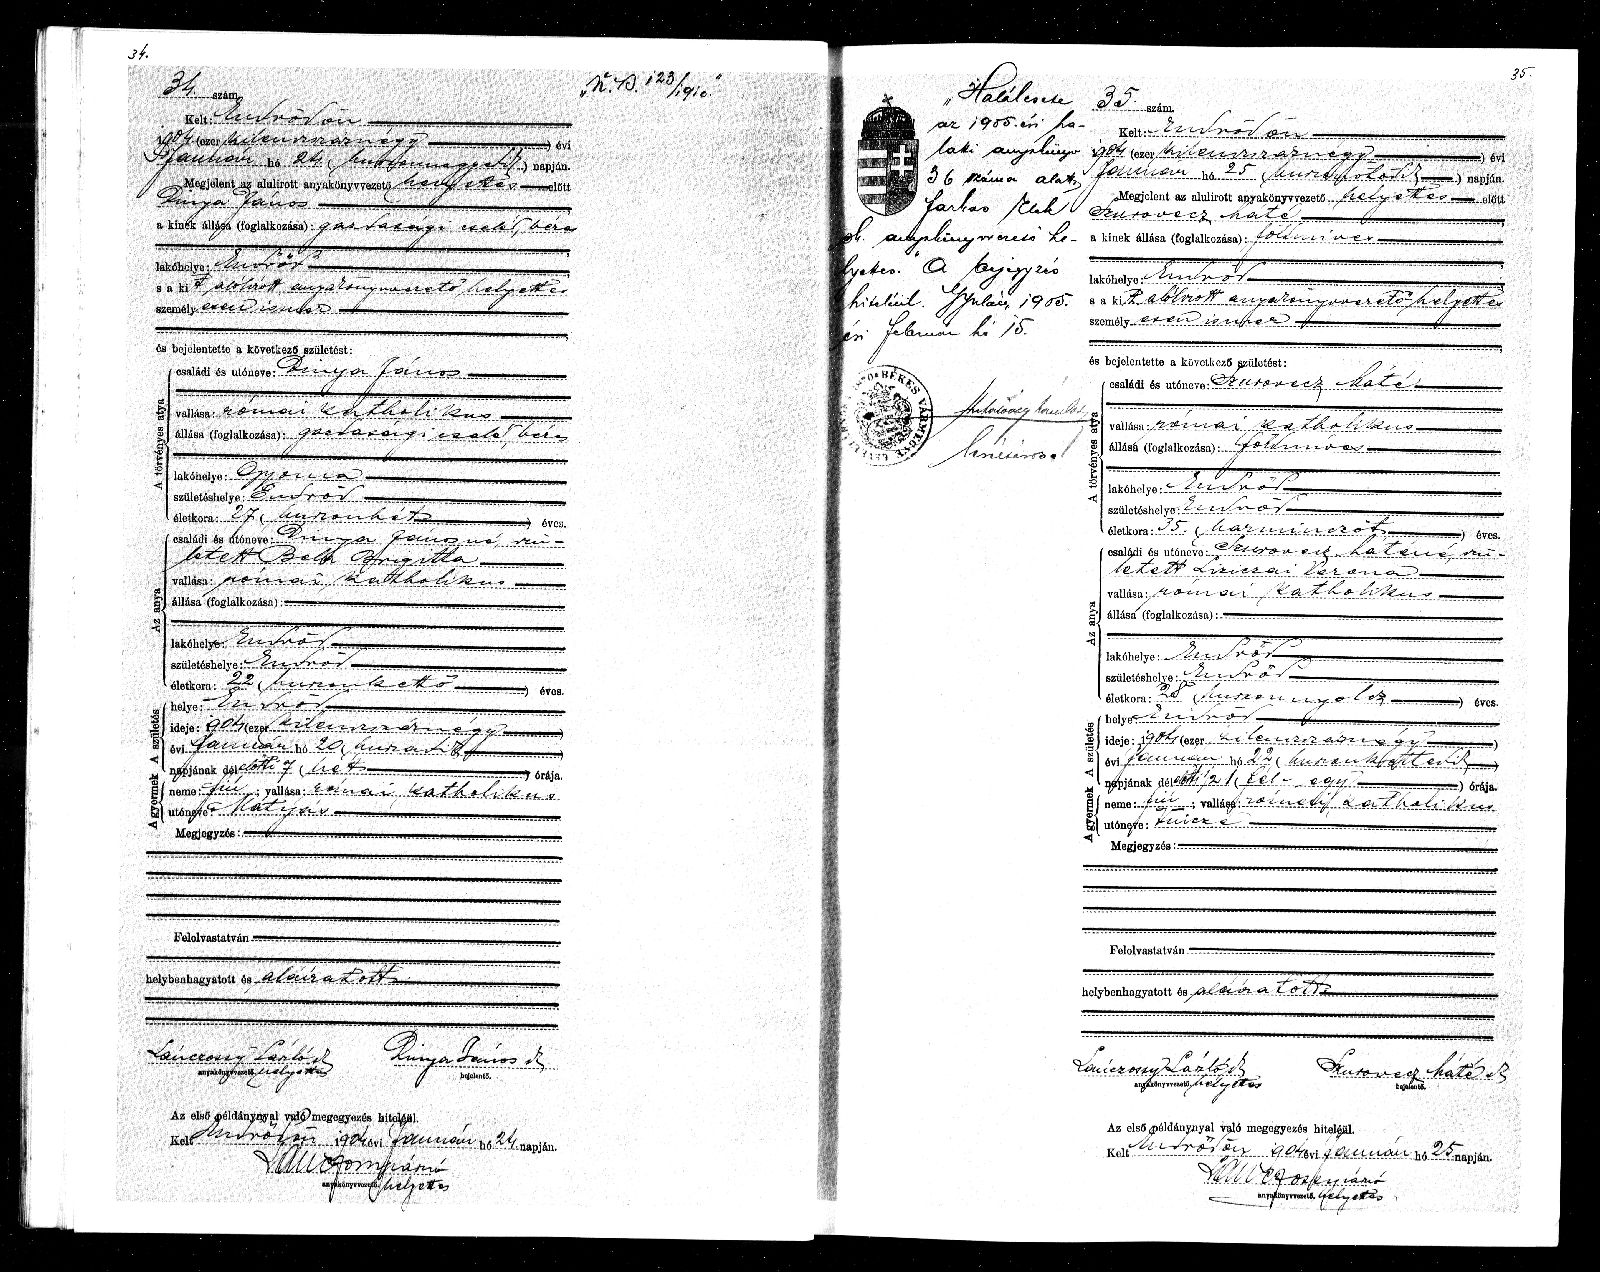 34.
34. szám.
"K. B. 123/1910."
Kelt: Endrődön
1904 (ezer kilenczszáznégy) évi
január hó 24 (huszonnegyedik) napján.
Megjelent az alulirott anyakönyvvezető helyettes előtt
Dinya János
a kinek állása (foglalkozása): gazdasági cseléd, béres
lakóhelye: Endrőd
s a kit alólirott anyakönyvvezető helyettes
személyesen ismer
és bejelentette a következő születést:
A törvényes atya
családi és utóneve: Dinya János
vallása: római katholikus
állása (foglalkozása): gazdasági cseléd, béres
lakóhelye: Gyoma
születéshelye: Endrőd
életkora: 27 (huszonhét) éves.
Az anya
családi és utóneve: Dinya Jánosné, szü-
letett Brigitta
vallása: római katholikus
állása (foglalkozása):
lakóhelye: Endrőd
születéshelye: Endrőd
életkora: 22 (huszonkettő) éves.
A gyermek A születés
helye: Endrőd
ideje: 1904 (ezer kilenczszáznégy)
évi január hó 20 (huszadik)
napjának délelőtti 7 (hét) órája.
neme: fiú; vallása: római katholikus
utóneve: Mátyás
Megjegyzés:
Felolvastatván
helybenhagyatott és aláiratott.
Lánczossy László sk Dinya János sk
anyakönyvvezető. helyettes bejelentő.
Az első példánynyal való megegyezés hiteléül.
Kelt Endrődön 1904 évi január hó 24 napján.
anyakönyvvezető. helyettes
35.
"Halálesete
az 1905. évi ha-
lálti anyakönyv
36 száma alatt.
Farkas Elek
sk. anyakönyvvezető he-
lyettes." A bejegyzés
hiteléül. Gyulán, 1905.
évi február hó 15.
BÉKÉS VÁRMEGYE
35. szám.
Kelt: Endrődön
1904 (ezer kilenczszáznégy) évi
január hó 25 (huszonötödik) napján.
Megjelent az alulirott anyakönyvvezető helyettes előtt
Szurovecz Máté
a kinek állása (foglalkozása): földmíves
lakóhelye: Endrőd
s a kit alólirott anyakönyvvezető helyettes
személyesen ismer
és bejelentette a következő születést:
A törvényes atya
családi és utóneve: Szurovecz Máté
vallása: római katholikus
állása (foglalkozása): földmíves
lakóhelye: Endrőd
születéshelye: Endrőd
életkora: 35 (harminczöt) éves.
Az anya
családi és utóneve: Szurovecz Máténé, szü-
letett Verona
vallása: római katholikus
állása (foglalkozása):
lakóhelye: Endrőd
születéshelye: Endrőd
életkora: 28 (huszonnyolcz) éves.
A gyermek A születés
helye: Endrőd
ideje: 1904 (ezer kilenczszáznégy)
évi január hó 22 (huszonkettedik)
napjának délelőtti 1/2 1 (fél-egy) órája.
neme: fiú; vallása: római katholikus
utóneve: Vincze
Megjegyzés:
Felolvastatván
helybenhagyatott és aláiratott.
Lánczossy László sk Szurovecz Máté sk
anyakönyvvezető. helyettes bejelentő.
Az első példánynyal való megegyezés hiteléül.
Kelt Endrődön 1904 évi január hó 25 napján.
anyakönyvvezető. helyettes